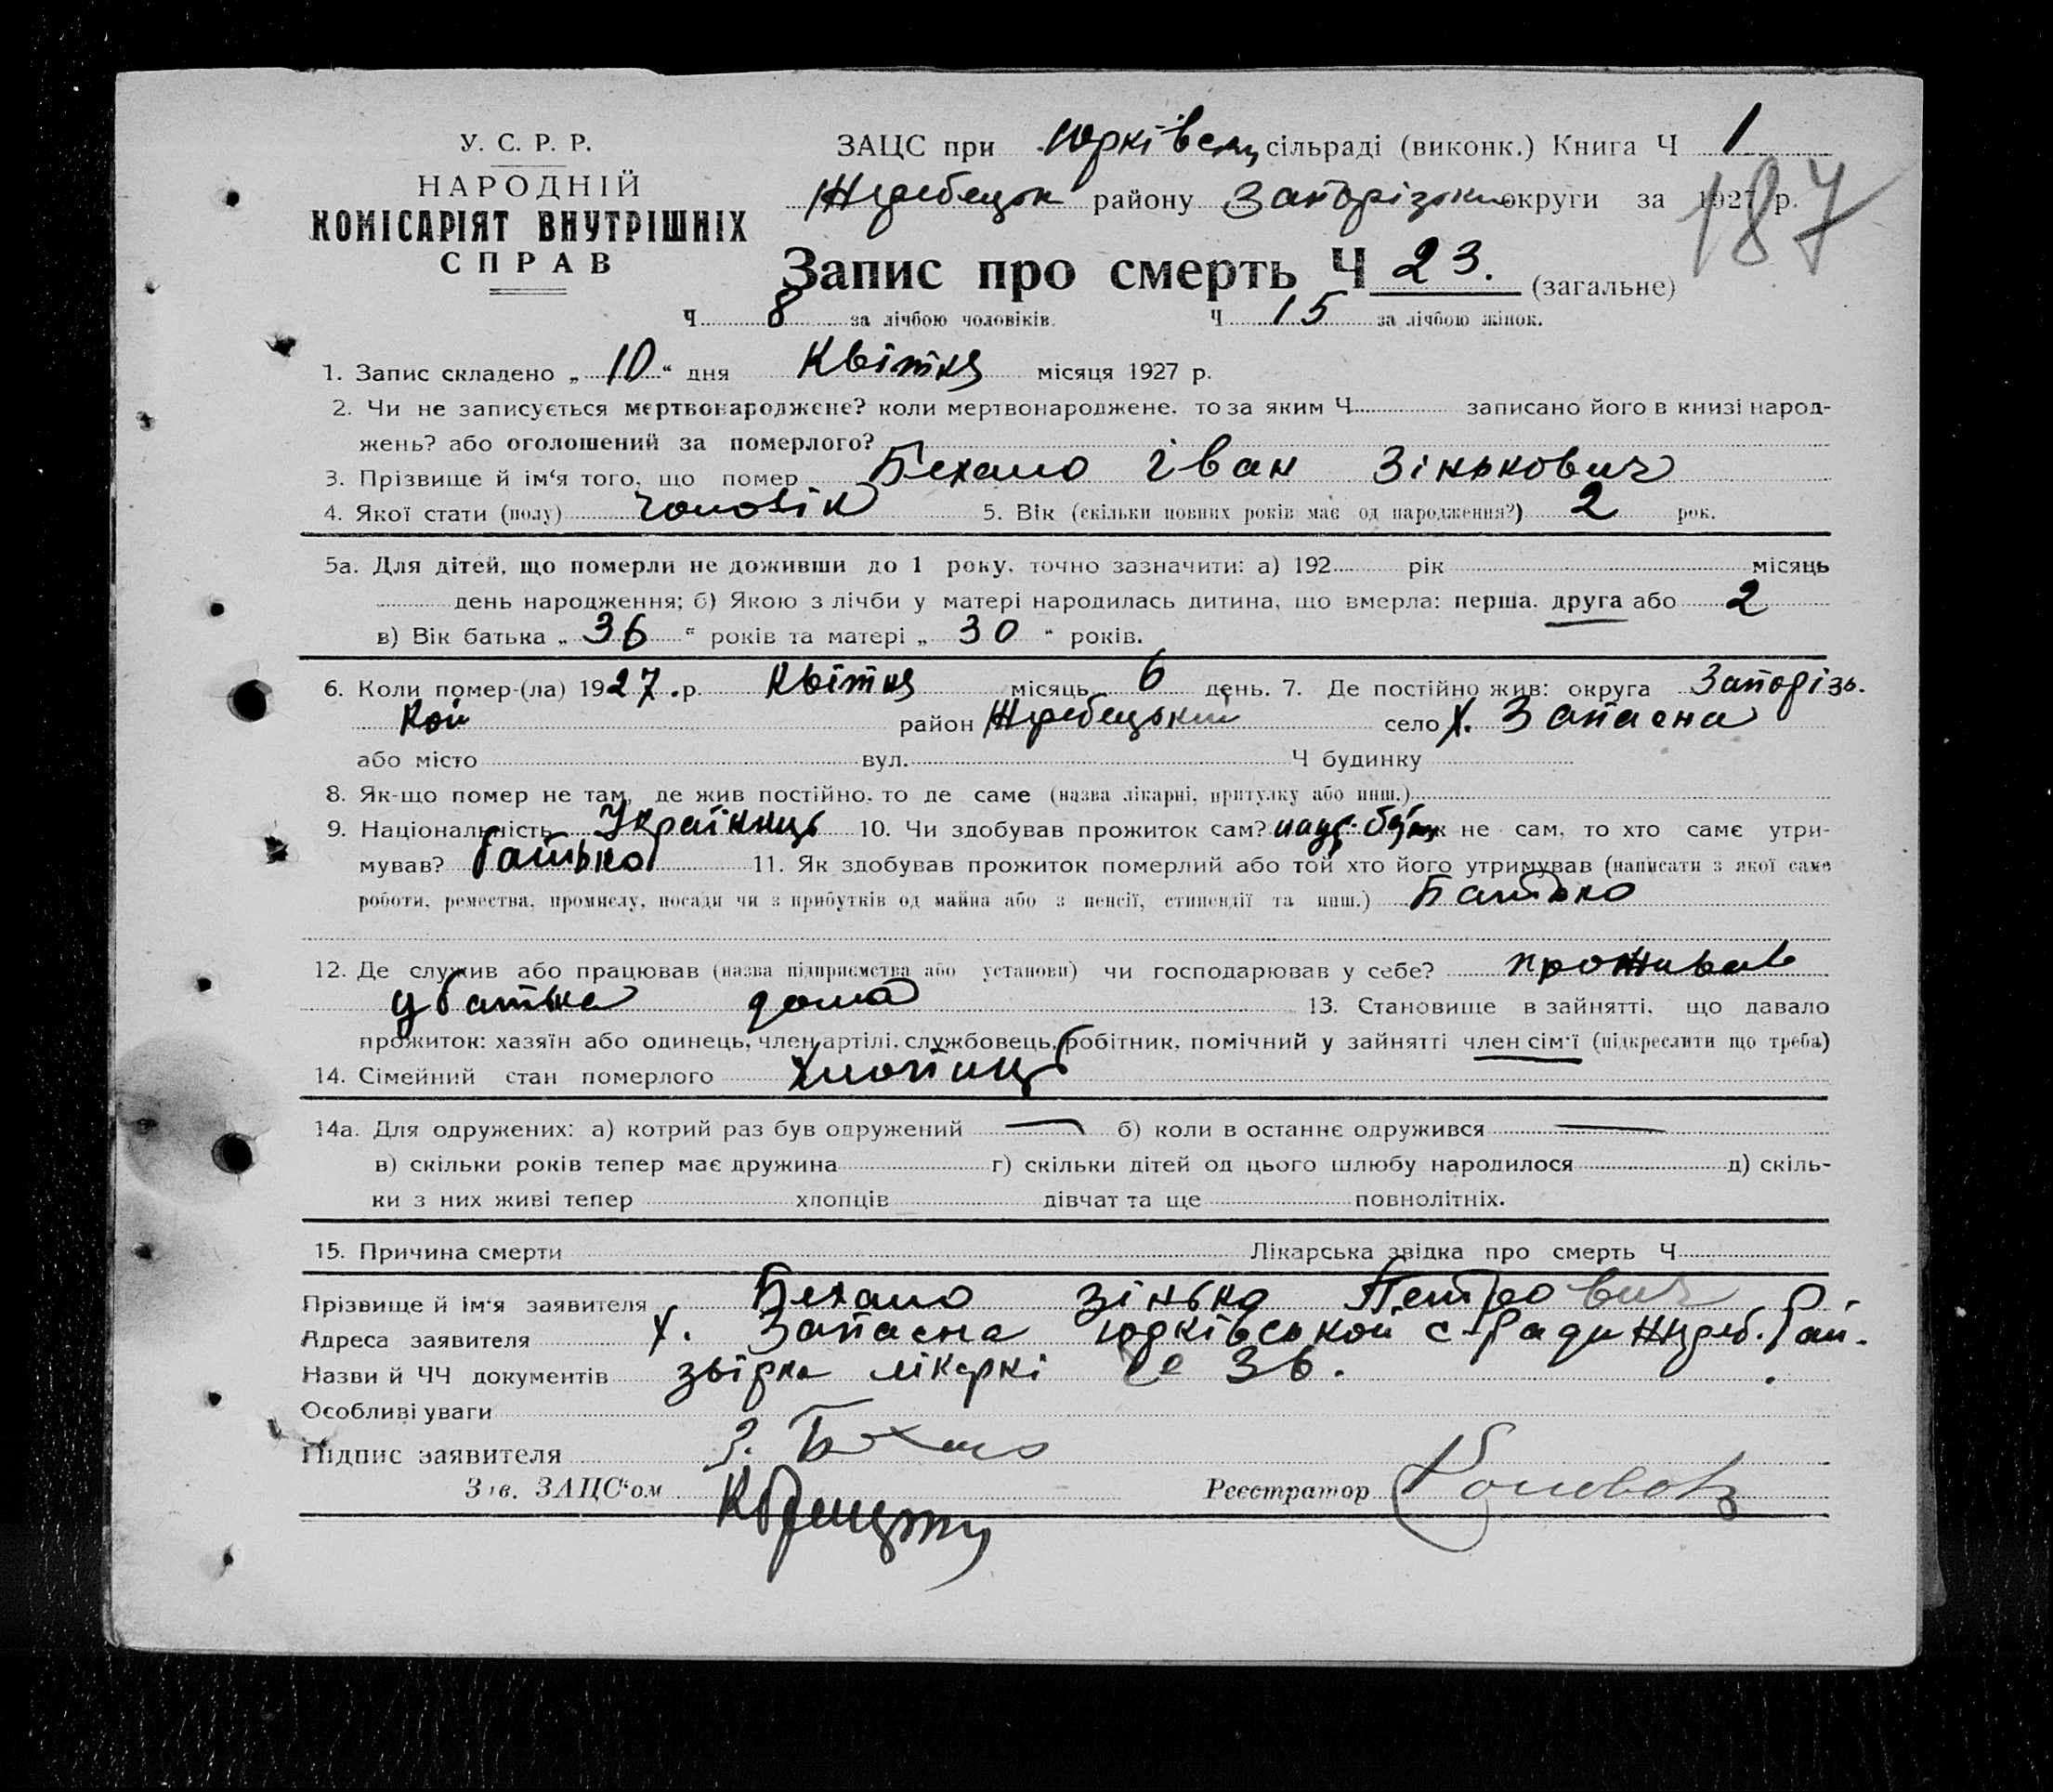 У. С. Р. Р.
НАРОДНІЙ
КОМІСАРІЯТ ВНУТРІШНІХ
СПРАВ
ЗАЦС при Юрківськ сільраді (виконк.) Книга Ч 1
Жеребецьк району Запорізьк округи за 1927 р.
187
Запис про смерть Ч 23. (загальне)
Ч 8 за лічбою чоловіків. Ч 15 за лічбою жінок.
1. Запис складено „ 10 “ дня Квітня місяця 1927 р.
2. Чи не записується мертвонароджене? коли мертвонароджене, то за яким Ч записано його в книзі народ-
жень? або оголошений за померлого?
3. Прізвище й ім‘я того, що помер Бехало Іван Зінькович
4. Якої стати (полу) чоловік 5. Вік (скільки повних років має од народження?) 2 рок.
5а. Для дітей, що померли не доживши до 1 року, точно зазначити: а) 192 рік місяць
день народження; б) Якою з лічби у матері народилась дитина, що вмерла: перша, друга або 2
в) Вік батька „ 36 “ років та матері „ 30 “ років.
6. Коли помер-(ла) 1927. р. Квітня місяць 6 день. 7. Де постійно жив: округа Запорізь.
кой район Жеребецький село х. Запасна
або місто вул. Ч будинку
8. Як-що помер не там, де жив постійно, то де саме (назва лікарні, притулку або инш.)
9. Національність Українець 10. Чи здобував прожиток сам? не сам, то хто саме утри-
мував? батько 11. Як здобував прожиток померлий або той хто його утримував (написати з якої саме
роботи, ремества, промислу, посади чи з прибутків од майна або з пенсії, стипендії та инш.) Батько
12. Де служив або працював (назва підприємства або установи) чи господарював у себе? проживав
у батька дома 13. Становище в зайнятті, що давало
прожиток: хазяїн або одинець, член артілі, службовець, робітник, помічний у зайнятті член сім‘ї (підкреслити що треба)
14. Сімейний стан померлого Хлопець
14а. Для одружених: а) котрий раз був одружений — б) коли в останнє одружився —
в) скільки років тепер має дружина г) скільки дітей од цього шлюбу народилося д) скіль-
ки з них живі тепер хлопців дівчат та ще повнолітніх.
15. Причина смерти Лікарська звідка про смерть Ч
Прізвище й ім‘я заявителя Бехало Зінько Петрович
Адреса заявителя х. Запасна Юрківської с-ради Жереб. Рай.
Назви й ЧЧ документів звідка лікаркі 36.
Особливі уваги
Підпис заявителя З. Бехало
Зав. ЗАЦС‘ом
Реєстратор